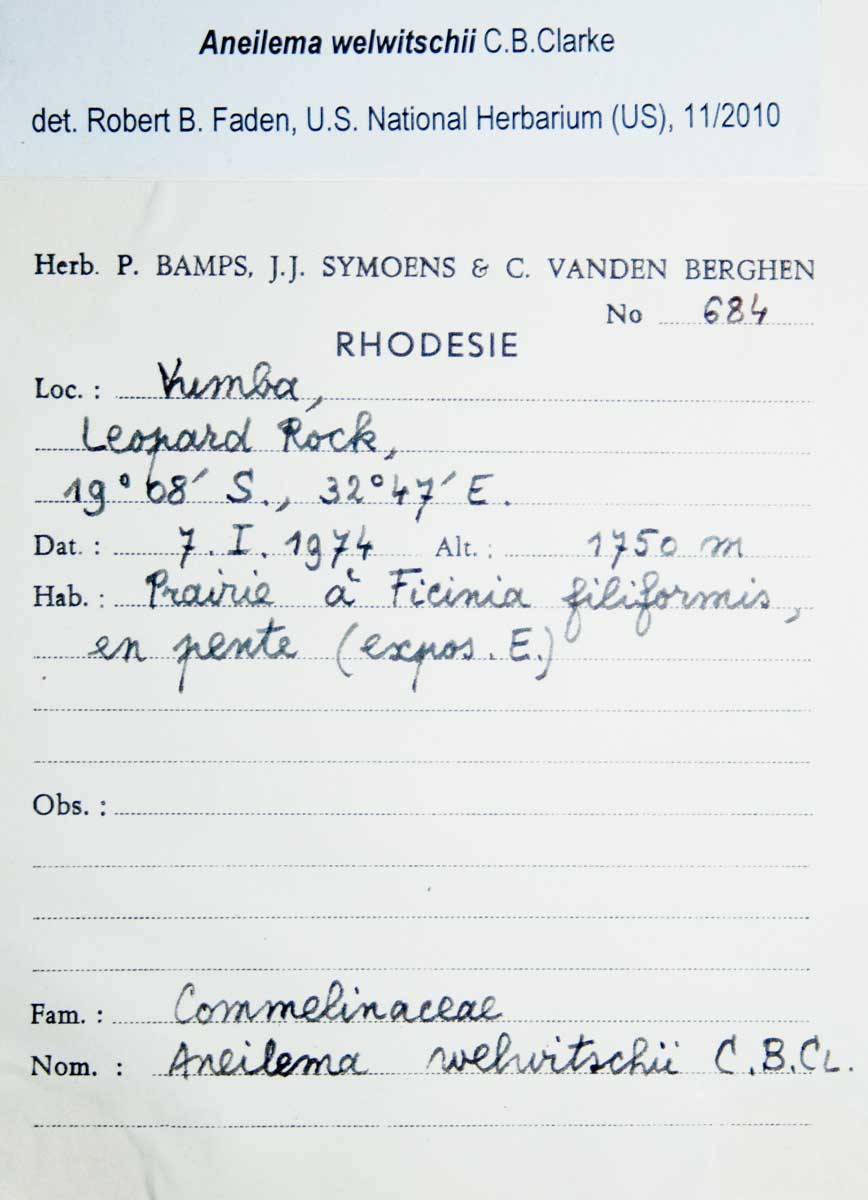 Aneilema welwitschii C.B.Clarke
det. Robert B. Faden, U.S. National Herbarium (US), 11/2010
Herb. P. BAMPS, J.J. SYMOENS & C. VANDEN BERGHEN
No 684
RHODESIE
Loc. : Vumba,
Leopard Rock,
19°08' S., 32°47' E.
Dat. : 7. I. 1974 Alt. : 1750 m
Hab. : Prairie à Ficinia filiformis,
en pente (expos. E.)
Obs. :
Fam. : Commelinaceae
Nom. : Aneilema welwitschii C.B.CL.